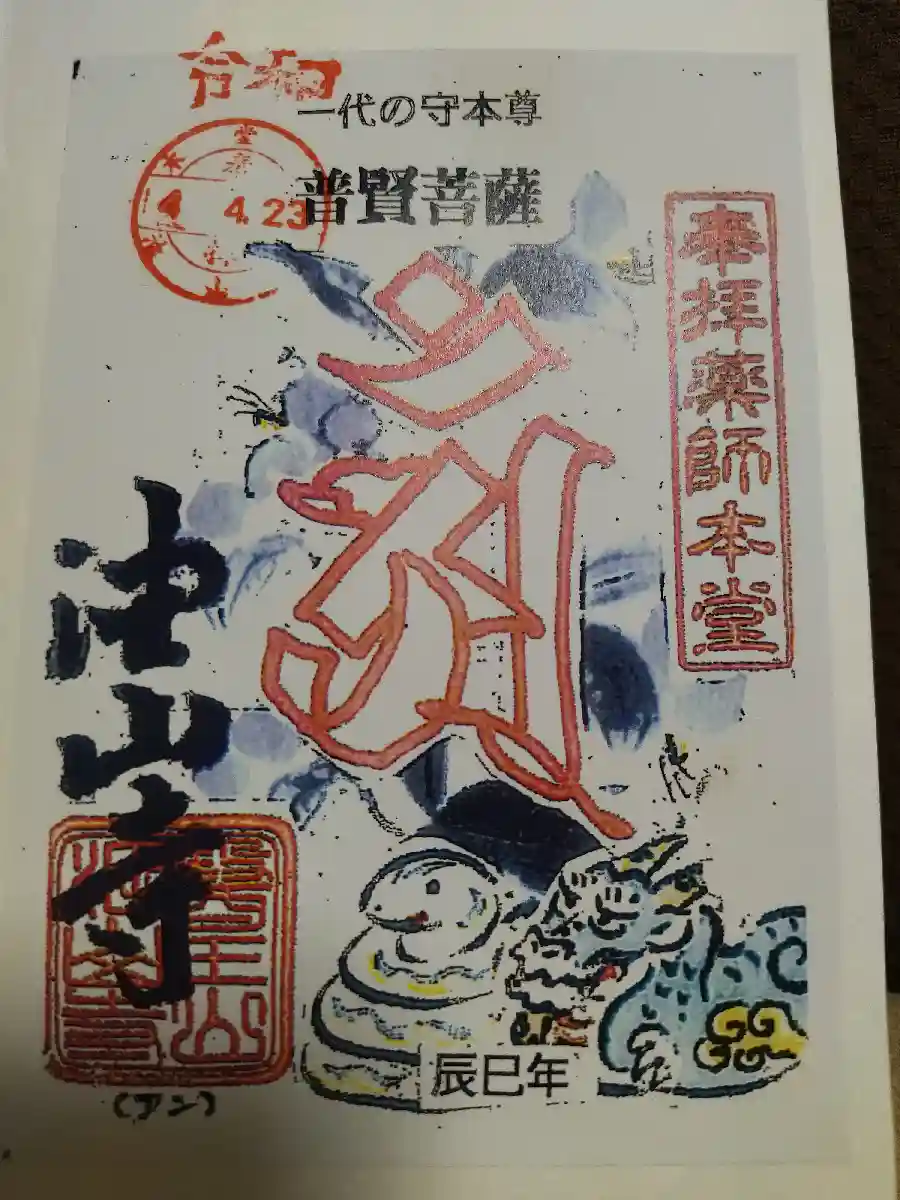 令和
4 4.23
一代の守本尊
普賢菩薩
奉拝薬師本堂
油山寺
醫王山
油山寺
(アン)
辰巳年